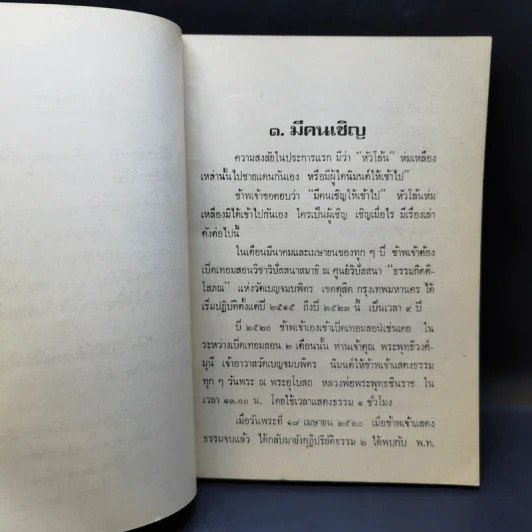 ๑. มีคนเชิญ
ความสงสัยในประการแรก มีว่า "หัวโล้น" ห่มเหลือง
เหล่านั้นไปชายแดนกันเอง หรือมีผู้ใดนิมนต์ให้เข้าไป"
ข้าพเจ้าขอตอบว่า "มีคนเชิญให้เข้าไป" หัวโล้นห่ม
เหลืองมิได้เข้าไปกันเอง ใครเป็นผู้เชิญ เชิญเมื่อไร มีเรื่องเล่า
ดังต่อไปนี้
ในเดือนมีนาคมและเมษายนของทุก ๆ ปี ข้าพเจ้าต้อง
เปิดเทอมสอนวิชาวิปัสสนาสมาธิ ณ ศูนย์วิปัสสนา "ธรรมกิตติ-
โสภณ" แห่งวัดเบญจมบพิตร เขตดุสิต กรุงเทพมหานคร ได้
เริ่มปฏิบัติตั้งแต่ปี ๒๕๑๕ ถึงปี ๒๕๒๓ นี้ เป็นเวลา ๙ ปี
ปี ๒๕๒๐ ข้าพเจ้าเองเข้าเปิดเทอมสอนเช่นเคย ใน
ระหว่างเปิดเทอมสอน ๒ เดือนนั้น ท่านเจ้าคุณ พระพุทธิวงศ์-
มุนี เจ้าอาวาสวัดเบญจมบพิตร นิมนต์ให้ข้าพเจ้าแสดงธรรม
ทุก ๆ วันพระ ณ พระอุโบสถ หลวงพ่อพระพุทธชินราช ใน
เวลา ๑๓.๐๐ น. โดยใช้เวลาแสดงธรรม ๑ ชั่วโมง
เมื่อวันพระที่ ๑๗ เมษายน ๒๕๒๐ เมื่อข้าพเจ้าแสดง
ธรรมจบแล้ว ได้กลับมายังกุฏิปริยัติธรรม ๒ ได้พบกับ พ.ท.